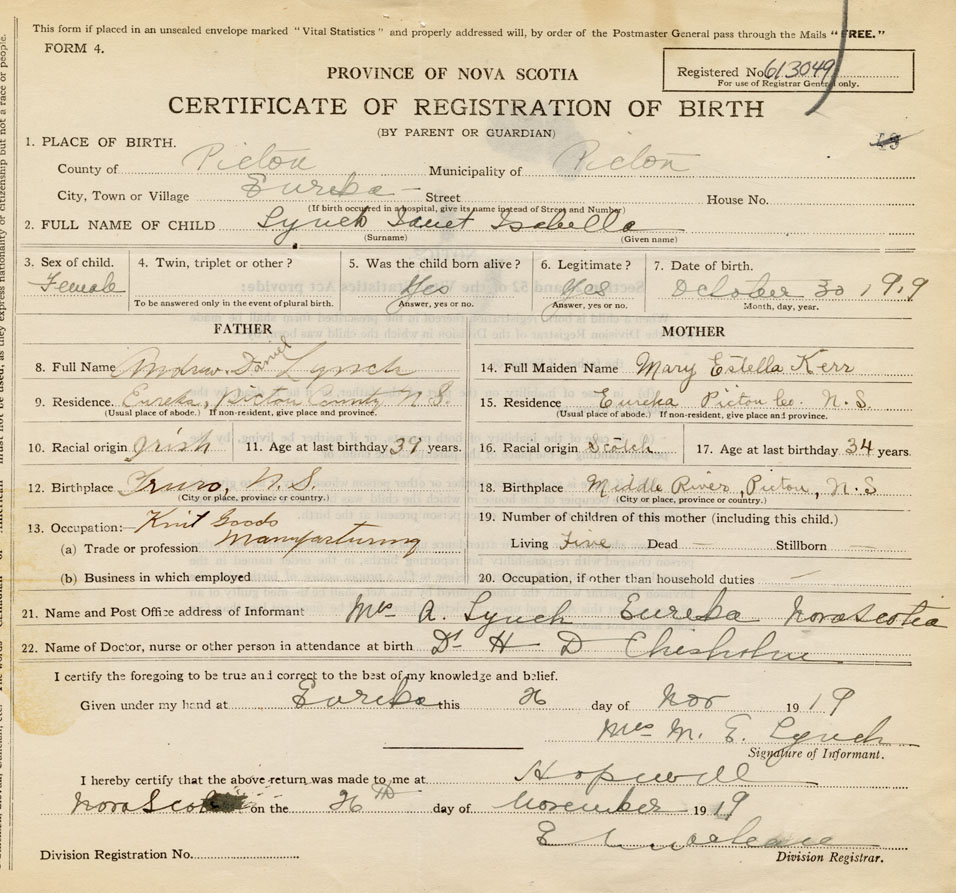 This form if placed in an unsealed envelope marked "Vital Statistics" and properly addressed will, by order of the Postmaster General pass through the Mails "FREE."
FORM 4.
Registered No. 613049
For use of Registrar General only.
PROVINCE OF NOVA SCOTIA
CERTIFICATE OF REGISTRATION OF BIRTH
(BY PARENT OR GUARDIAN)
1. PLACE OF BIRTH.
County of Pictou Municipality of Pictou
City, Town or Village Eureka Street House No.
(If birth occurred in a hospital, give its name instead of Street and Number)
2. FULL NAME OF CHILD Lynch Janet Isabella
(Surname) (Given name)
3. Sex of child. 4. Twin, triplet or other? 5. Was the child born alive? 6. Legitimate? 7. Date of birth.
Female Yes Yes October 30 1919
To be answered only in the event of plural birth. Answer, yes or no. Answer, yes or no. Month, day, year.
FATHER MOTHER
8. Full Name Andrew Daniel Lynch 14. Full Maiden Name Mary Estella Kerr
9. Residence. Eureka, Pictou County N.S. 15. Residence Eureka Pictou Co. N.S.
(Usual place of abode.) If non-resident, give place and province. (Usual place of abode.) If non-resident, give place and province.
10. Racial origin Irish 11. Age at last birthday 39 years. 16. Racial origin Scotch 17. Age at last birthday 34 years.
12. Birthplace Truro, N.S. 18. Birthplace Middle River, Pictou, N.S
(City or place, province or country.) (City or place, province or country.)
13. Occupation:- Knit Goods 19. Number of children of this mother (including this child.)
(a) Trade or profession Manufacturing Living Five Dead — Stillborn —
(b) Business in which employed 20. Occupation, if other than household duties —
21. Name and Post Office address of Informant Mrs A. Lynch Eureka Nova Scotia
22. Name of Doctor, nurse or other person in attendance at birth Dr H D Chisholm
I certify the foregoing to be true and correct to the best of my knowledge and belief.
Given under my hand at Eureka this 26 day of Nov 1919
Mrs M. E. Lynch
Signature of Informant.
I hereby certify that the above return was made to me at Hopewell
Nova Scotia on the 26th day of November 1919
E
Division Registration No. Division Registrar.